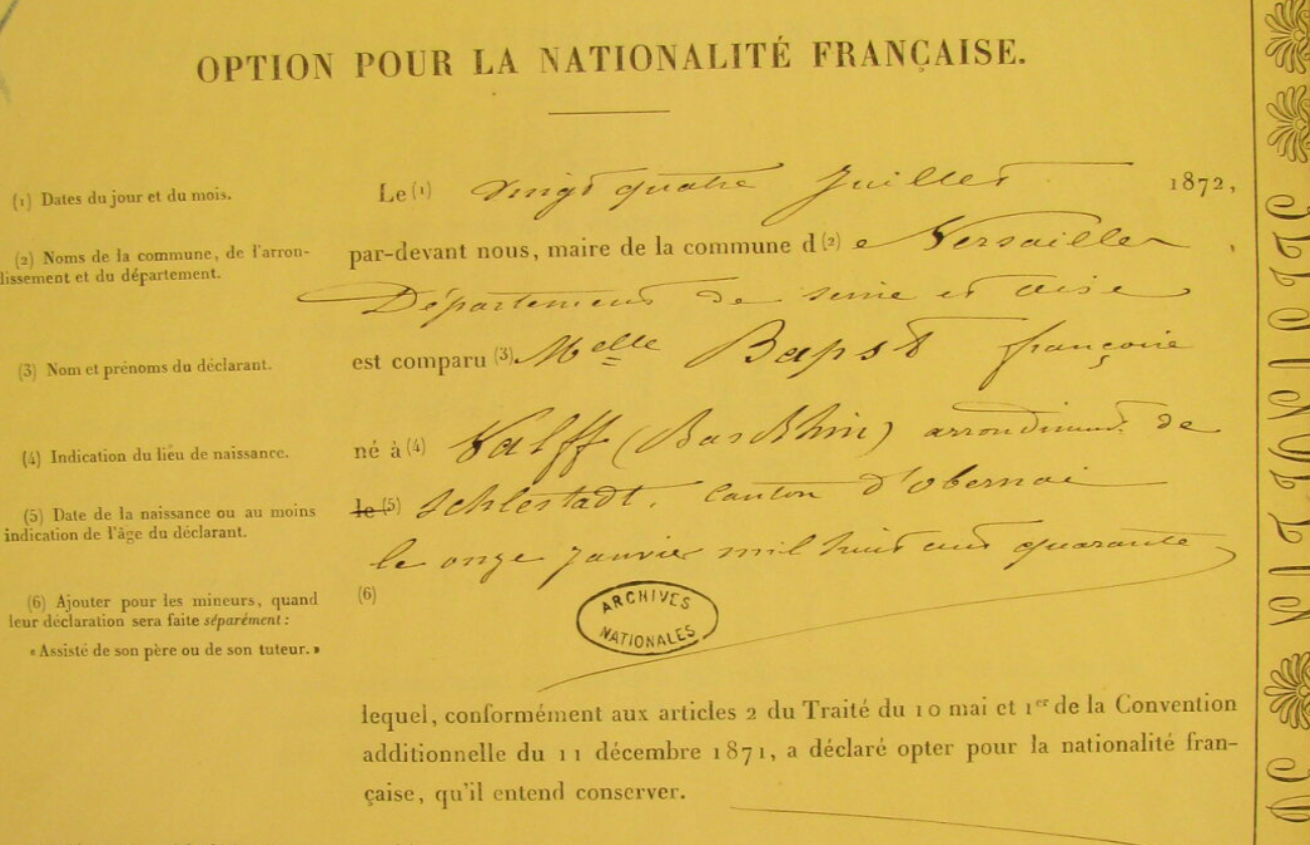 OPTION POUR LA NATIONALITÉ FRANÇAISE.
(1) Dates du jour et du mois.
Le (1) vingt quatre Juillet 1872,
(2) Noms de la commune, de l'arron-
dissement et du département.
par-devant nous, maire de la commune d (2) e Versailles,
Département de seine et oise
(3) Nom et prénoms du déclarant.
est comparu (3) Melle Bapst françoise
(4) Indication du lieu de naissance.
né à (4) Valff (Bas Rhin) arrondiment de
(5) Date de la naissance ou au moins
indication de l'âge du déclarant.
le (5) Schlestadt, Canton d'obernai
le onze Janvier mil huit cent quarante
(6) Ajouter pour les mineurs, quand
leur déclaration sera faite séparément :
« Assisté de son père ou de son tuteur. »
(6)
ARCHIVES
NATIONALES
lequel, conformément aux articles 2 du Traité du 10 mai et 1er de la Convention
additionnelle du 11 décembre 1871, a déclaré opter pour la nationalité fran-
çaise, qu'il entend conserver.